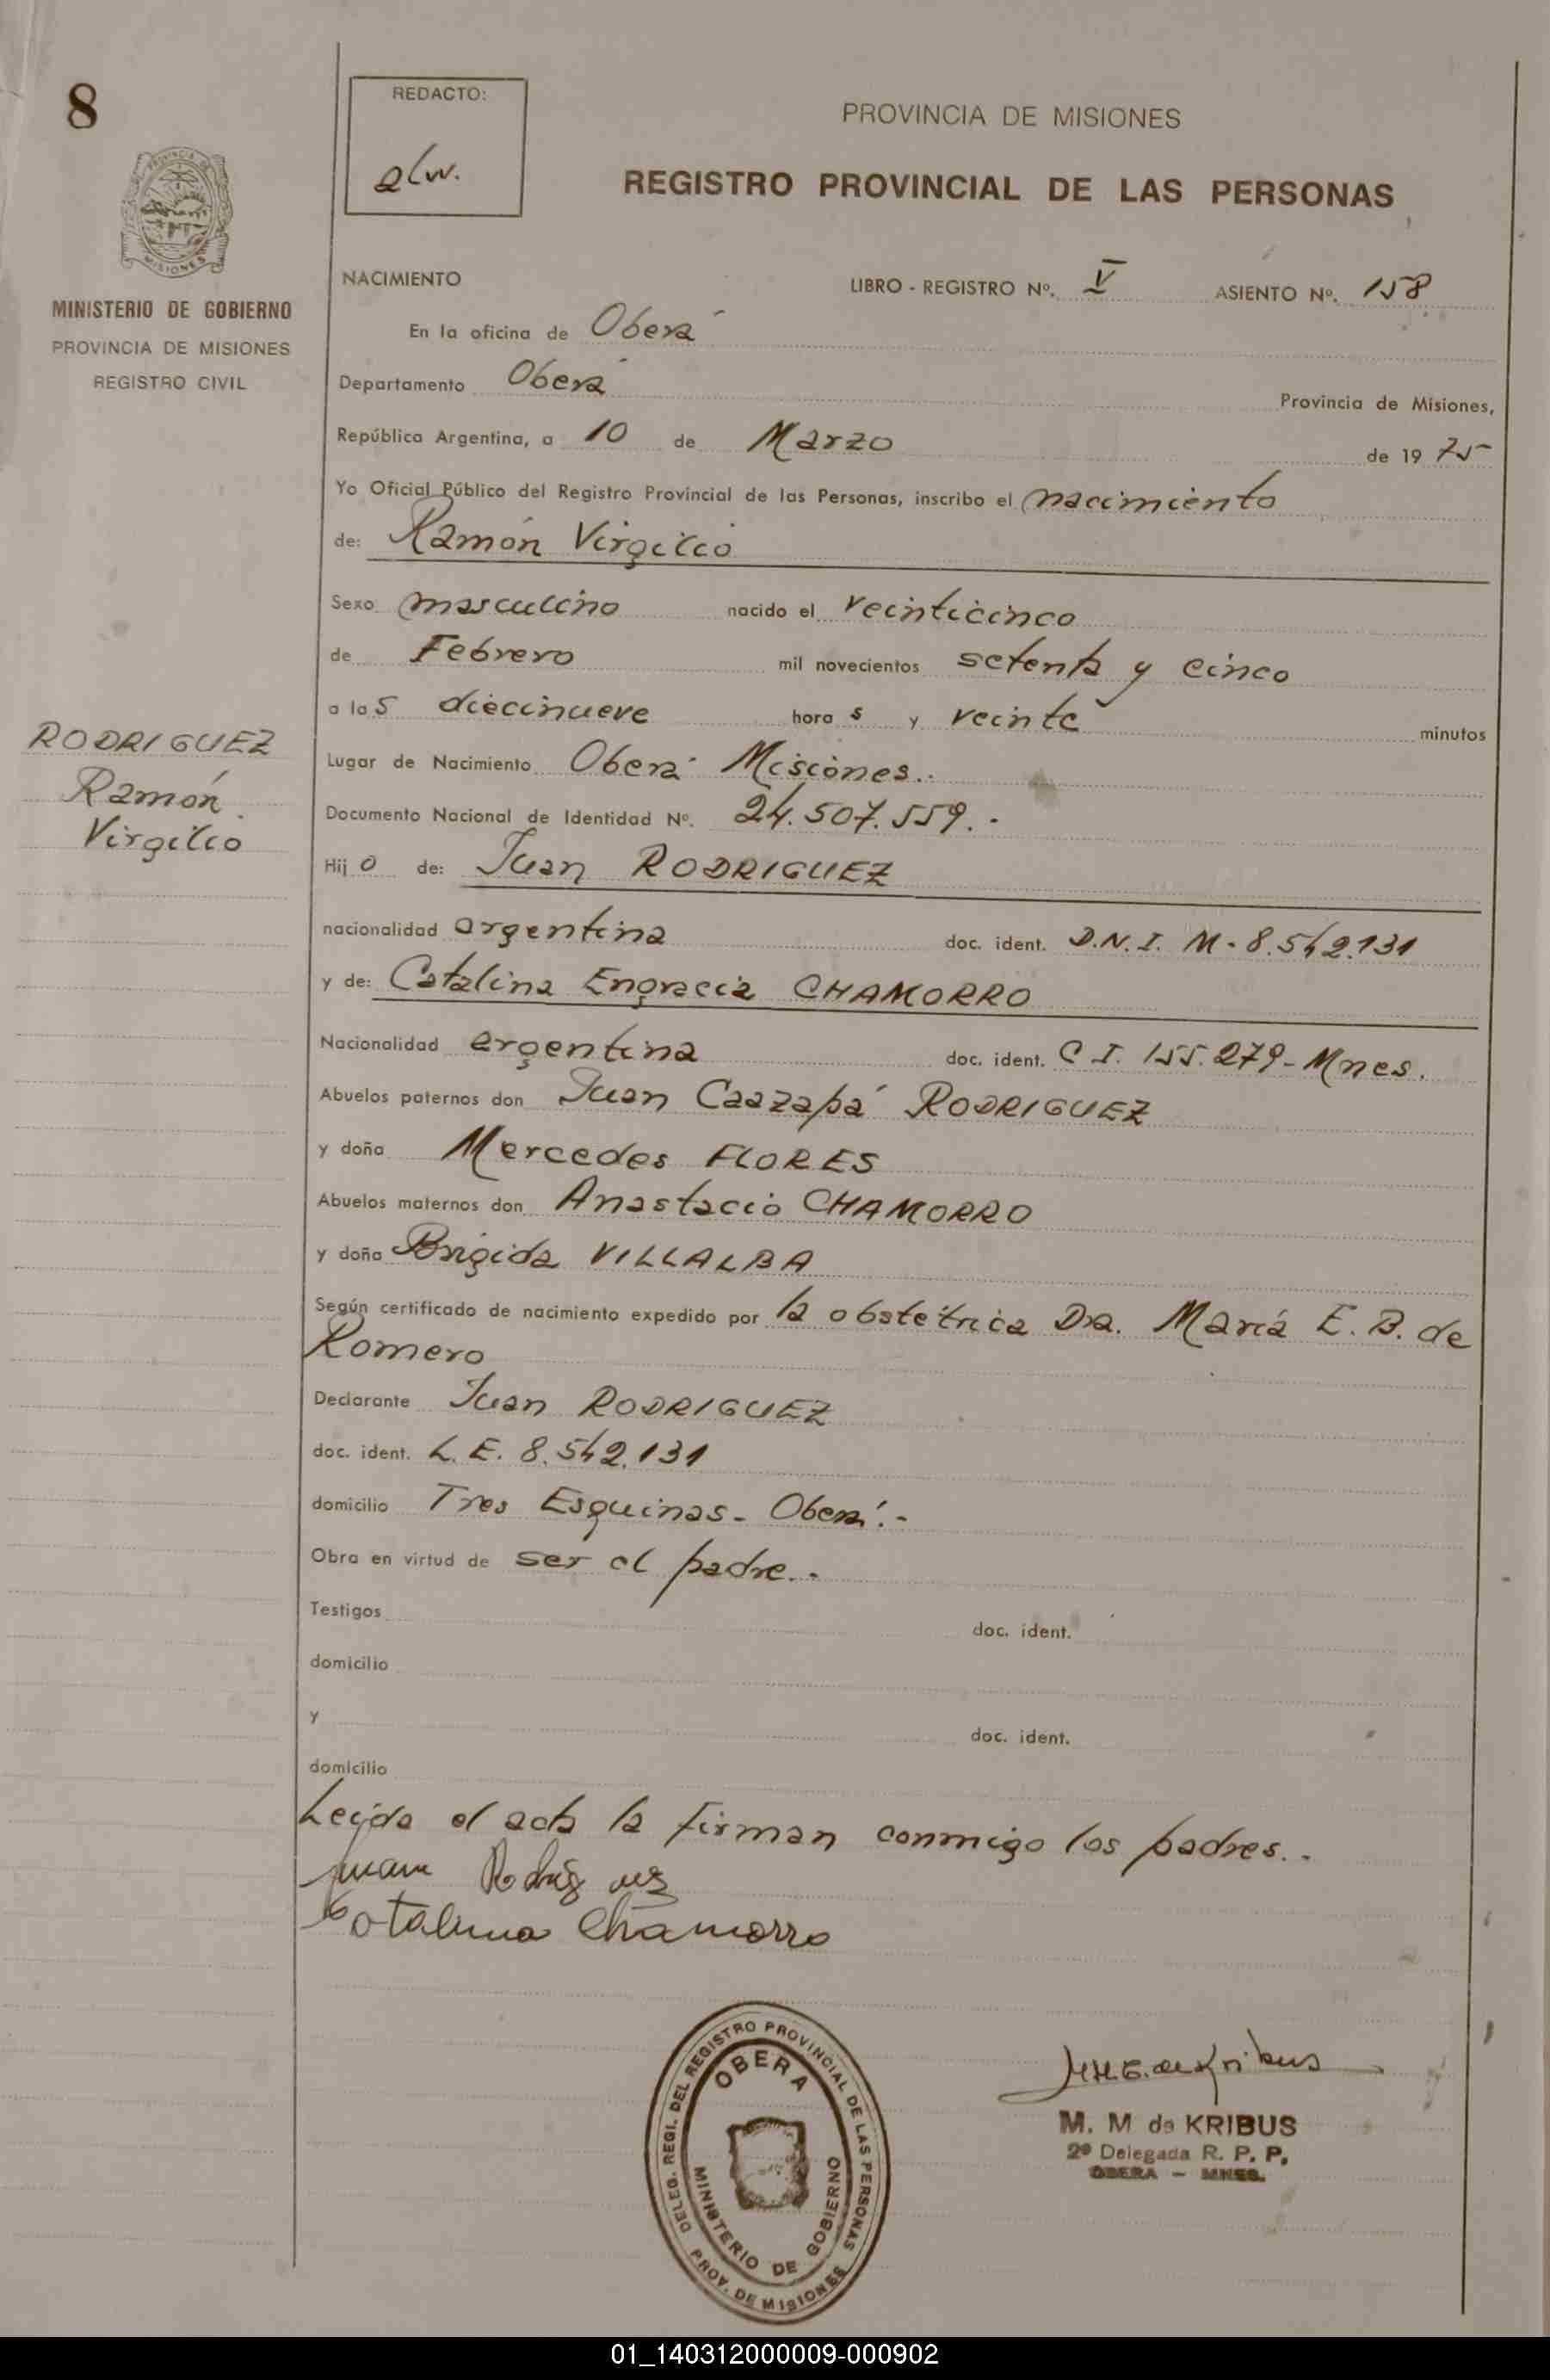 8
REDACTO:
PROVINCIA DE MISIONES
REGISTRO PROVINCIAL DE LAS PERSONAS
PROVINCIA DE
MISIONES
MINISTERIO DE GOBIERNO
PROVINCIA DE MISIONES
REGISTRO CIVIL
NACIMIENTO LIBRO - REGISTRO Nº. V ASIENTO Nº. 158
En la oficina de Oberá
Departamento Oberá Provincia de Misiones,
República Argentina, a 10 de Marzo de 1975
Yo Oficial Público del Registro Provincial de las Personas, inscribo el nacimiento
de: Ramón Virgilio
Sexo masculino nacido el veinticinco
de Febrero mil novecientos setenta y cinco
a las diecinueve horas y veinte minutos
RODRIGUEZ
Ramón
Virgilio
Lugar de Nacimiento Oberá Misiones.-
Documento Nacional de Identidad Nº. 24.507.559.-
Hijo de: Juan RODRIGUEZ
nacionalidad argentina doc. ident. D.N.I. M-8.542.131
y de: Catalina Engracia CHAMORRO
Nacionalidad argentina doc. ident. C I. 155.279-Mnes.
Abuelos paternos don Juan Caazapá RODRIGUEZ
y doña Mercedes FLORES
Abuelos maternos don Anastacio CHAMORRO
y doña Brigida VILLALBA
Según certificado de nacimiento expedido por la obstétrica Dra. María E. B. de
Romero
Declarante Juan RODRIGUEZ
doc. ident. L. E. 8.542.131
domicilio Tres Esquinas - Oberá.-
Obra en virtud de ser el padre.-
Testigos doc. ident.
domicilio
y doc. ident.
domicilio
Leída el acta la firman conmigo los padres.-
Juan Rodriguez
Catalina Chamorro
DELEG. REGI. DEL REGISTRO PROVINCIAL DE LAS PERSONAS
OBERA
MINISTERIO DE GOBIERNO
PROV. DE MISIONES
M. M de KRIBUS
2ª Delegada R. P. P.
OBERA - MNES.
01_140312000009-000902